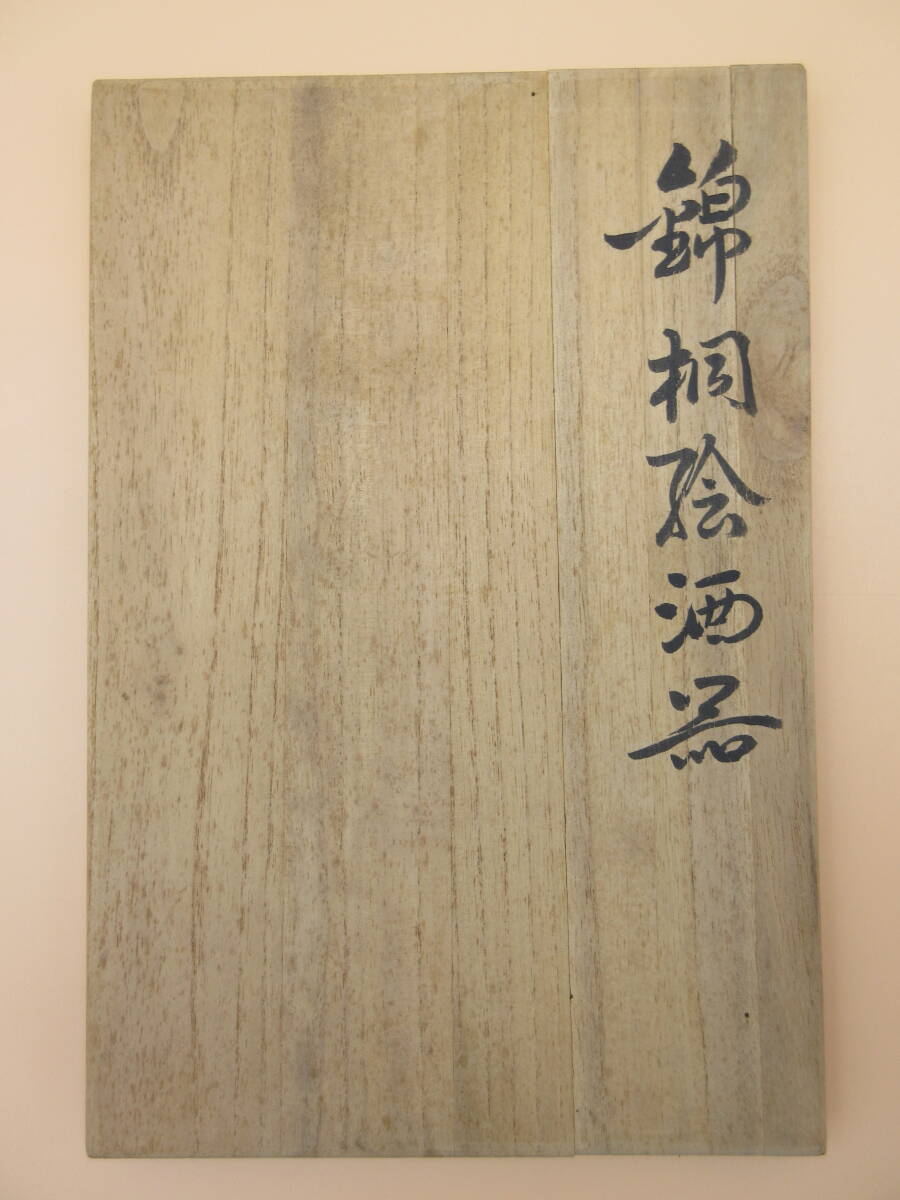 錦桐絵酒器